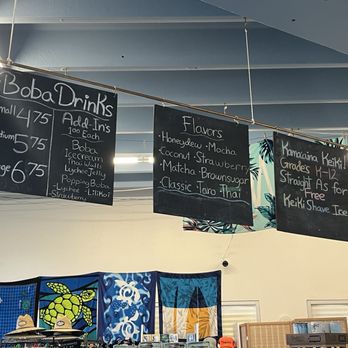 Boba Drinks
Small 4.75
Medium 5.75
Large 6.75
Add-In's
1.00 Each
Boba
Icecream
Thai Wall
Lychee Jelly
Popping Boba
Lychee -Lilikoi
Strawberry
Flavors
• Honeydew • Mocha
• Coconut • Strawberry
• Matcha • Brownsugar
• Classic • Taro Thai
Kamaaina Keiki
Grades K-12
Straight As for
Free
Keiki Shave Ice